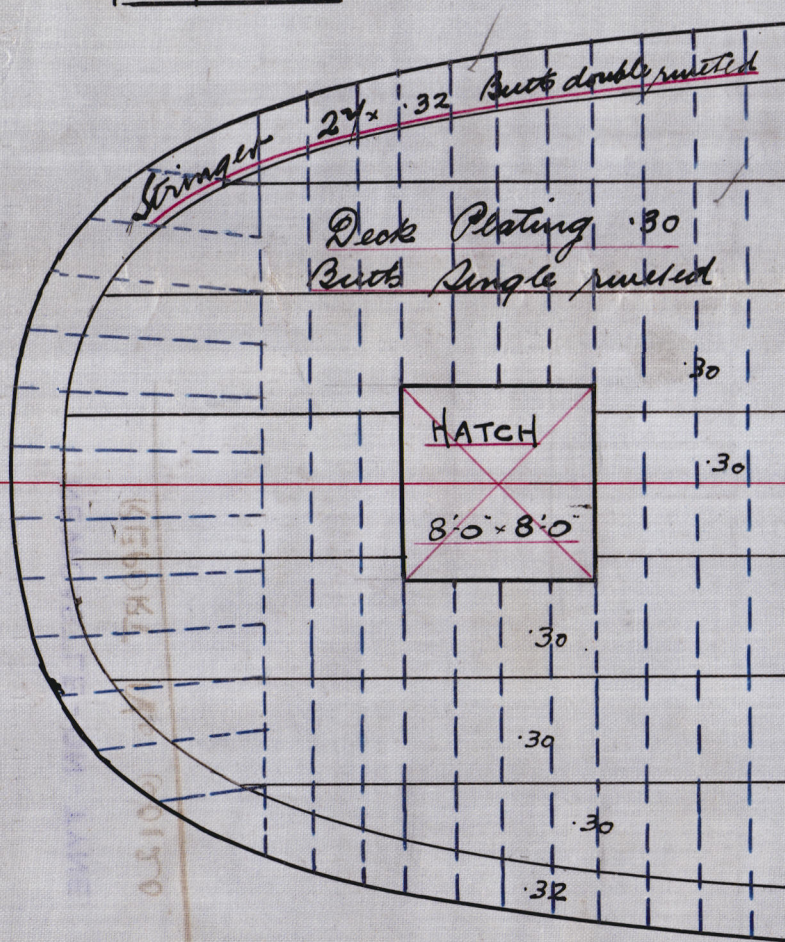 Stringer 24 × .32 Butts double riveted
Deck Plating .30
Butts Single riveted
.30
HATCH
.30
8'.0" × 8'.0"
.30
.30
.30
.32
REPORT No